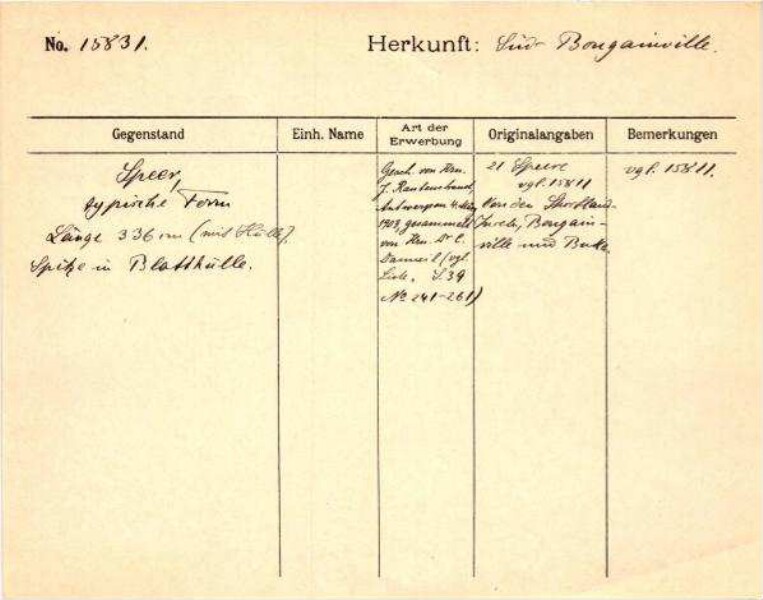 No. 15831.
Herkunft: Süd Bougainville.
Gegenstand
Einh. Name
Art der Erwerbung
Originalangaben
Bemerkungen
Speer,
typische Form
Länge 336 cm (mit Hülle).
Spitze in Blatthülle.
Gesch. von Hrn.
J. Rautenstrauch,
Antwerpen 4. März
1909, gesammelt
von Hrn. Dr. C.
Danneil (vgl.
Liste, S. 39
No 241-261)
21 Speere
vgl. 15811
Von den Shortland-
Inseln, Bougain-
ville und Buka.
vgl. 15811.